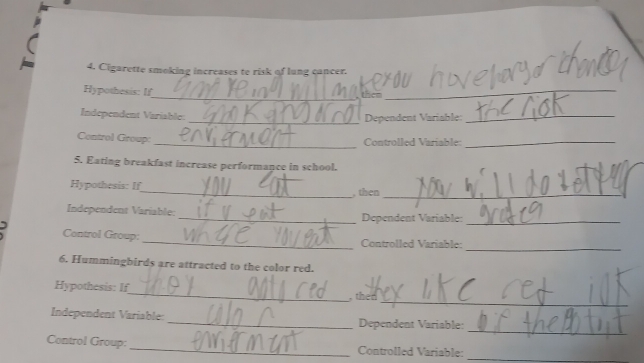 4. Cigarette smoking increases te risk of lung cancer.
Hypothesis: If will make then you have
Independent Variable: Dependent Variable: the risk
Control Group: envierment Controlled Variable:
5. Eating breakfast increase performance in school.
Hypothesis: If you eat , then you will do better
Independent Variable: if u eat Dependent Variable: grades
Control Group: where you eat Controlled Variable:
6. Hummingbirds are attracted to the color red.
Hypothesis: If they red , then they like red
Independent Variable: color Dependent Variable: if the
Control Group: envierment Controlled Variable: